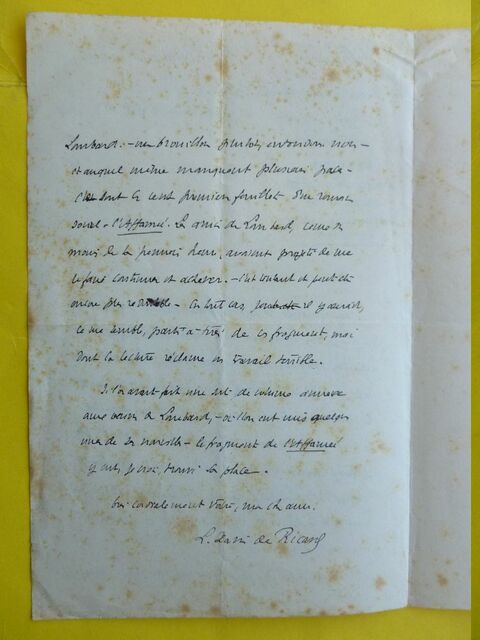 Lombard : – un brouillon plutôt, entendons nous –
et auquel même manquent plusieurs pages –
dont les cent premiers feuillets d'un roman
social – l'Affamé. Les amis de Lombard, comme
moi de la première heure, avaient projeté de me
le faire continuer et achever. – C'était tentant et peut-être
encore plus – En tout cas, il y aurait,
ce me semble, parti à tirer de ce fragment, mais
dont la lecture réclame un travail terrible.
Si l'on avait fait une sorte de volume annexe
aux œuvres de Lombard, – où l'on eut mis quelques
unes de ses nouvelles – le fragment de l'Affamé
y eut, je crois, trouvé sa place.
Bien cordialement vôtre, mon cher ami.
L. Xavier de Ricard